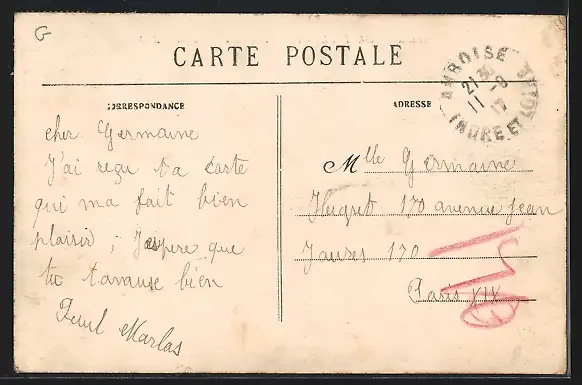 G
CARTE POSTALE
CORRESPONDANCE
ADRESSE
AMBOISE
21 30
11 - 8
INDRE-ET-LOIRE
cher Germaine
J'ai reçu ta carte
qui ma fait bien
plaisir ; Jespere que
tu tamuse bien
Marlas
Mlle Germaine
Hugret 170 avenue jean
Jaures 170
Paris XIX